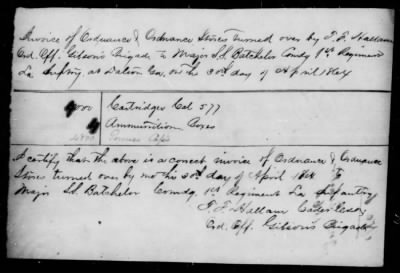 Invoice of Ordnance & Ordnance Stores turned over by T. F. Hallam
Ord. Off. Gibson's Brigade to Major S.L. Batchelor Comdg 1st Regiment
La Infty at Dalton Ga, on the 30th day of April 1864
4000 Cartridges Cal 577
4 Ammunition Boxes
4800 Percussion Caps
I certify that the above is a correct invoice of Ordnance & Ordnance
Stores turned over by me this 30th day of April 1864 to
Major S.L. Batchelor Comdg 1st Regiment La Infantry
T. F. Hallam
Ord. Off. Gibson's Brigade